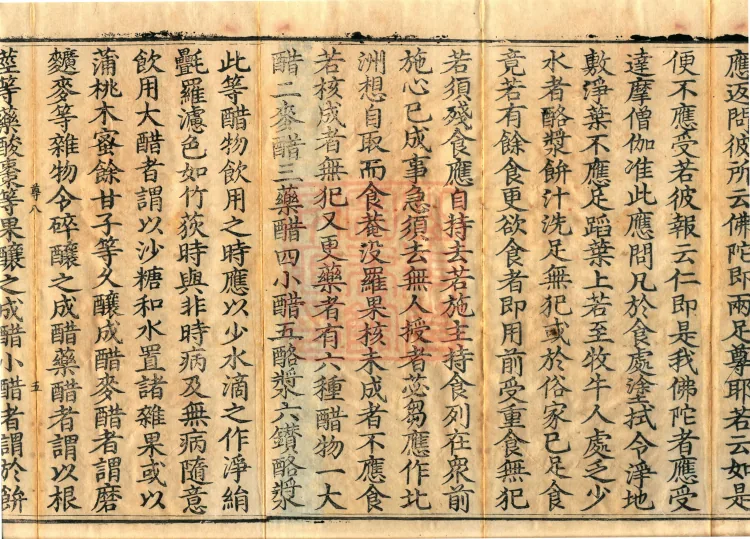 應返問彼所云佛陀即兩足尊耶若云如是
便不應受若彼報云仁即是我佛陀者應受
達摩僧伽准此應問凡於食處塗拭令淨地
敷淨葉不應足蹈葉上若至牧牛人處乏少
水者酪漿餅汁洗足無犯或於俗家已足食
竟若有餘食更欲食者即用前受重食無犯
若須殘食應自持去若施主持食列在眾前
施心已成事急須去無人授者苾芻應作北
洲想自取而食菴没羅果核未成者不應食
若核成者無犯又更藥者有六種醋物一大
醋二麥醋三藥醋四小醋五酪漿六鑽酪漿
此等醋物飲用之時應以少水滴之作淨絹
㲲羅濾色如竹荻時與非時病及無病隨意
飲用大醋者謂以沙糖和水置諸雜果或以
蒲桃木蜜餘甘子等久釀成醋麥醋者謂磨
䴵麥等雜物令碎釀之成醋藥醋者謂以根
華八
五
莖等藥酸棗等果釀之成醋小醋者謂於餅